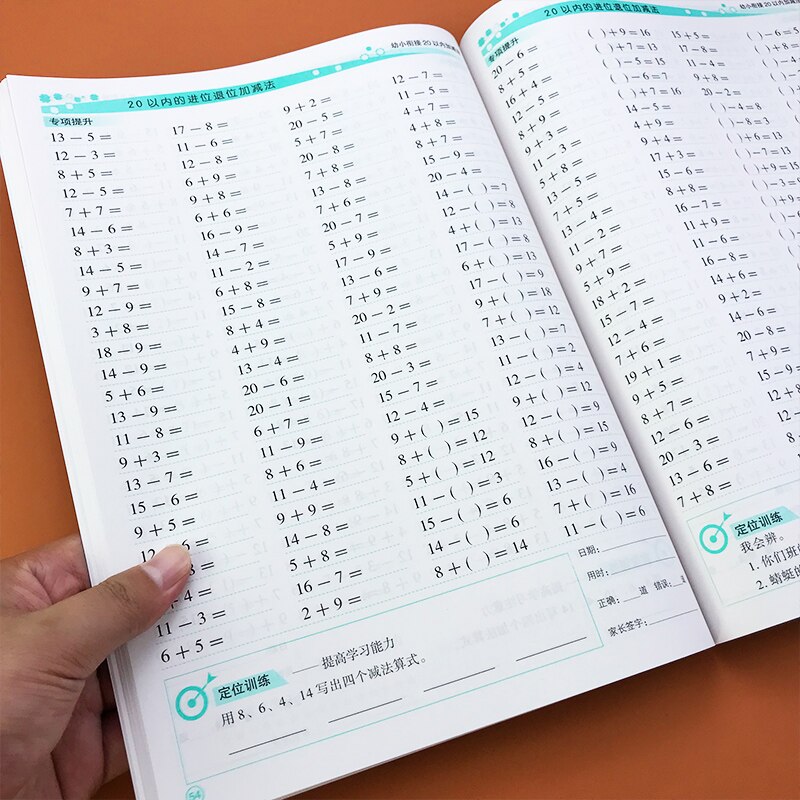 20以内的进位退位加减法
专项提升
13－5＝
12－3＝
8＋5＝
12－5＝
7＋7＝
14－6＝
8＋3＝
14－5＝
9＋7＝
12－9＝
3＋8＝
18－9＝
14－9＝
5＋6＝
13－9＝
11－8＝
9＋3＝
13－7＝
15－6＝
9＋5＝
11－3＝
6＋5＝
17－8＝
11－6＝
12－8＝
6＋9＝
9＋8＝
6＋6＝
16－9＝
14－7＝
11－2＝
6＋8＝
15－8＝
8＋4＝
4＋9＝
13－4＝
20－6＝
20－1＝
6＋7＝
11－9＝
8＋6＝
11－4＝
9＋9＝
14－8＝
5＋8＝
16－7＝
2＋9＝
9＋2＝
20－5＝
5＋7＝
20－8＝
7＋8＝
13－8＝
7＋6＝
20－7＝
5＋9＝
17－9＝
13－6＝
7＋9＝
20－2＝
11－7＝
8＋8＝
20－3＝
15－7＝
12－4＝
9＋( )＝15
8＋( )＝12
5＋( )＝12
11－( )＝3
15－( )＝6
14－( )＝6
8＋( )＝14
12－7＝
11－5＝
4＋7＝
4＋8＝
8＋7＝
15－9＝
20－4＝
14－( )＝7
12－( )＝8
4＋( )＝13
17－( )＝8
6＋( )＝13
17－( )＝9
9＋( )＝18
7＋( )＝12
13－( )＝7
11－( )＝2
12－( )＝4
9＋( )＝12
12－( )＝9
8＋( )＝15
16－( )＝9
13－( )＝4
7＋( )＝16
11－( )＝6
日期：
用时：
正确： 道 错误：
家长签字：
定位训练 ——提高学习能力
用8、6、4、14写出四个减法算式。
54
20以内的进位退位加减法
专项提升
20－6＝
8＋5＝
16＋4＝
12－5＝
8＋9＝
9＋3＝
11－3＝
5＋8＝
13－5＝
7＋5＝
13－4＝
11－2＝
9＋7＝
5＋9＝
18＋2＝
15－7＝
12－4＝
7＋6＝
19＋1＝
9＋5＝
8＋7＝
12－6＝
20－3＝
13－6＝
7＋8＝
( )＋9＝16
( )＋7＝13
( )－5＝15
( )－6＝7
( )＋7＝16
14－5＝
4＋9＝
9＋4＝
17＋3＝
15－6＝
8＋8＝
16－7＝
11＋9＝
11－6＝
16－8＝
14＋6＝
9＋2＝
14－6＝
20－8＝
7＋9＝
15－9＝
15＋5＝
17－8＝
11－4＝
9＋8＝
20－2＝
( )－4＝8
( )－8＝3
( )＋6＝13
( )－7＝13
定位训练
我会辨。